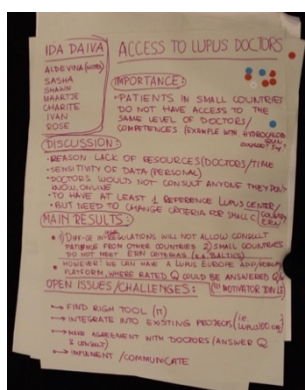 IDA DAIVA
ALDEVINA (NOTES)
SASHA
SHAWN
MAARTJE
CHARITE
IVAN
ROSE
ACCESS TO LUPUS DOCTORS
IMPORTANCE:
• PATIENTS IN SMALL COUNTRIES
DO NOT HAVE ACCESS TO THE
SAME LEVEL OF DOCTORS/
COMPETENCES (EXAMPLE WITH HYDROCHLO
DISCUSSION:
- REASON LACK OF RESOURCES (DOCTORS/TIME
- SENSITIVITY OF DATA (PERSONAL)
- DOCTORS WOULD NOT CONSULT ANYONE THEY DON'T
KNOW, ONLINE
- TO HAVE AT LEAST 1 REFERENCE LUPUS CENTER/
- BUT NEED TO CHANGE CRITERIA FOR SMALL
MAIN RESULTS:
REGULATIONS WILL NOT ALLOW CONSULT
PATIENTS FROM OTHER COUNTRIES 2) SMALL COUNTRIES
DO NOT MEET ERN CRITERIAS (E.G. BALTICS)
• HOWEVER WE CAN HAVE A LUPUS EUROPE APP/
PLATFORM, WHERE RATED Q COULD BE ANSWERED
OPEN ISSUES/CHALLENGES:
→ FIND RIGHT TOOL (IT)
→ INTEGRATE INTO EXISTING PROJECTS (i.e.
LUPUS100
→ MAKE AGREEMENT WITH DOCTORS/ANSWER Q
& CONSULT)
→ IMPLEMENT/COMMUNICATE